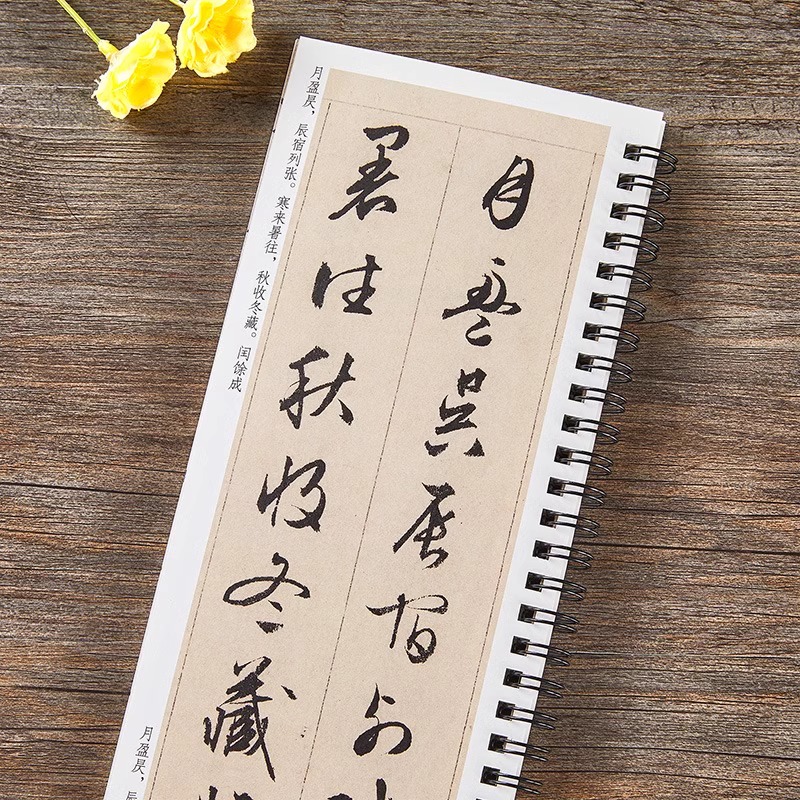 月盈昃辰宿列
暑往秋收冬藏
月盈昃，辰宿列张。寒来暑往，秋收冬藏。闰馀成
月盈昃，辰